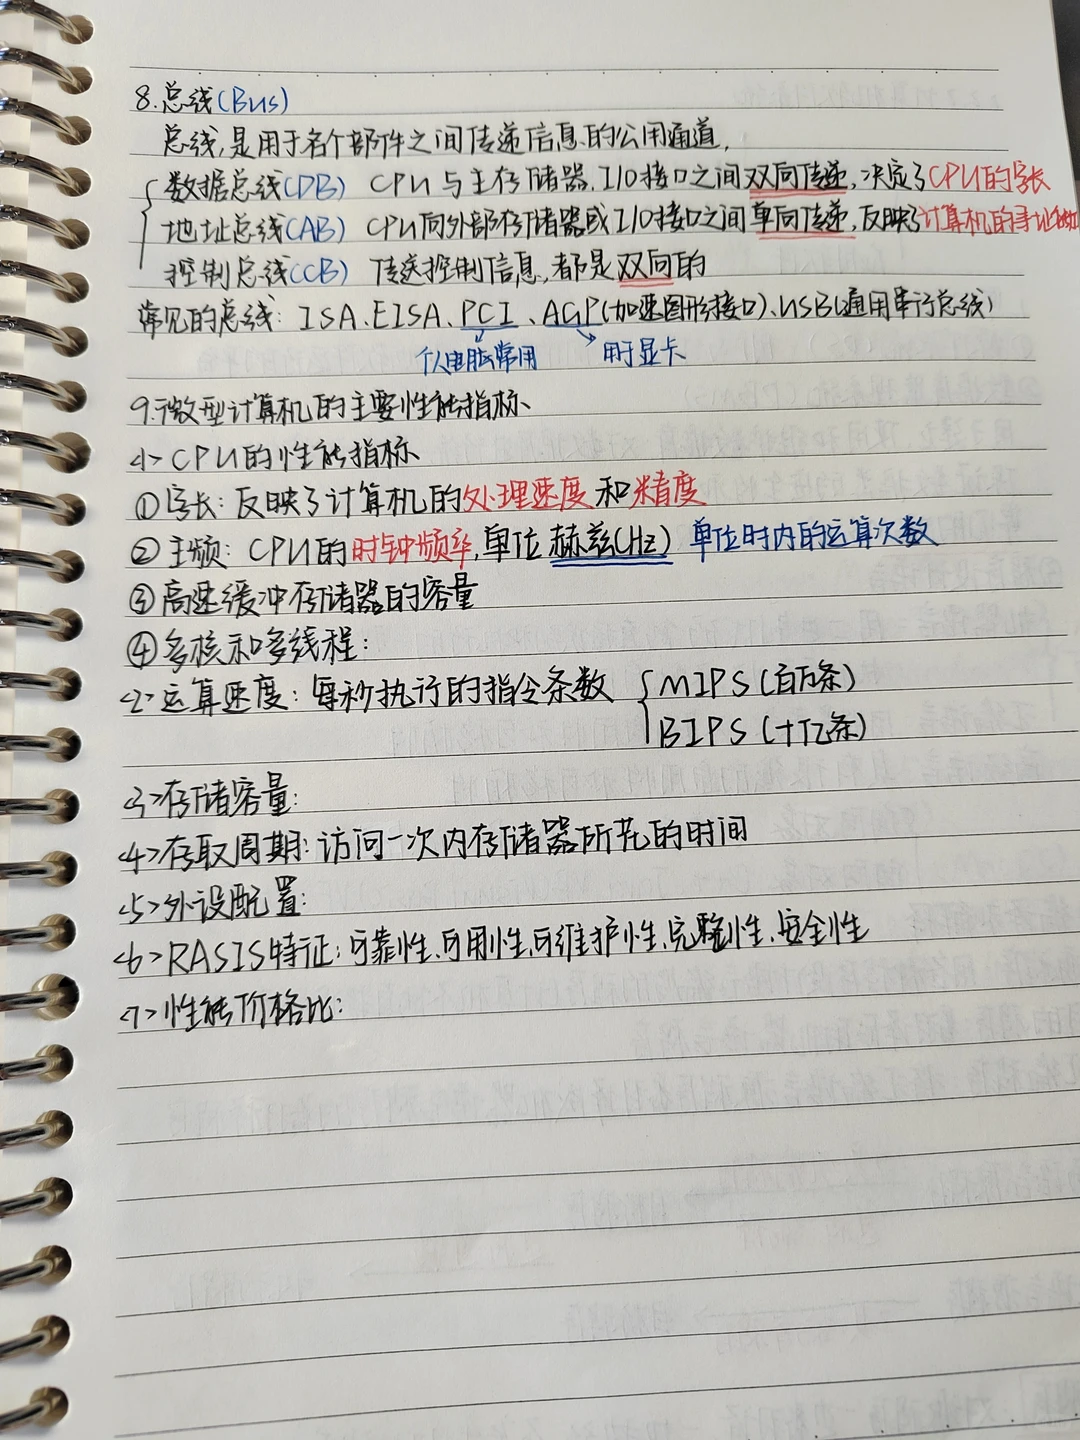 8.总线(Bus)
总线,是用于各个部件之间传递信息的公用通道,
数据总线(DB) CPU与主存储器、I/O接口之间双向传递,决定了CPU的字长
地址总线(AB) CPU向外部存储器或I/O接口之间单向传递,反映了计算机的寻址
控制总线(CB) 传送控制信息,都是双向的
常见的总线:ISA、EISA、PCI、AGP(加速图形接口)、USB(通用串行总线)
个人电脑常用 用于显卡
9.微型计算机的主要性能指标
<1>CPU的性能指标
①字长:反映了计算机的处理速度和精度
②主频:CPU的时钟频率,单位赫兹(Hz) 单位时内的运算次数
③高速缓冲存储器的容量
④多核和多线程:
<2>运算速度:每秒执行的指令条数 MIPS(百万条)
BIPS(十亿条)
<3>存储容量:
<4>存取周期:访问一次内存储器所花的时间
<5>外设配置:
<6>RASIS特征:可靠性、可用性、可维护性、完整性、安全性
<7>性能价格比: